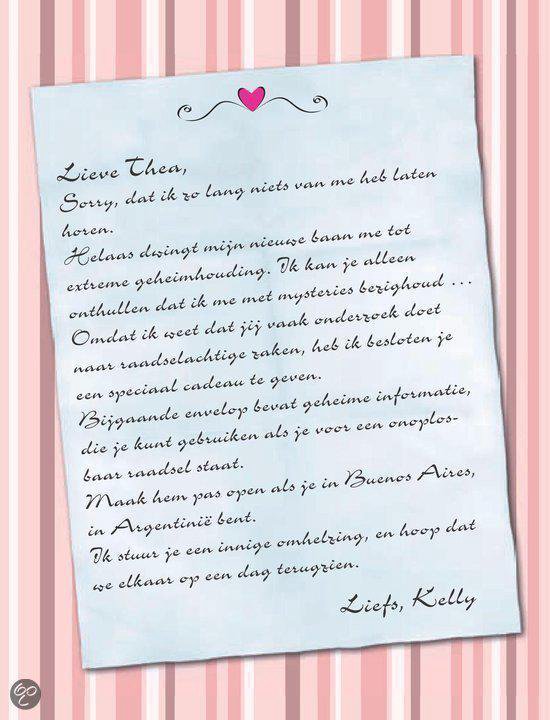 Lieve Thea,
Sorry, dat ik zo lang niets van me heb laten
horen.
Helaas dwingt mijn nieuwe baan me tot
extreme geheimhouding. Ik kan je alleen
onthullen dat ik me met mysteries bezighoud ...
Omdat ik weet dat jij vaak onderzoek doet
naar raadselachtige zaken, heb ik besloten je
een speciaal cadeau te geven.
Bijgaande envelop bevat geheime informatie,
die je kunt gebruiken als je voor een onoplos-
baar raadsel staat.
Maak hem pas open als je in Buenos Aires,
in Argentinië bent.
Ik stuur je een innige omhelzing, en hoop dat
we elkaar op een dag terugzien.
Liefs, Kelly